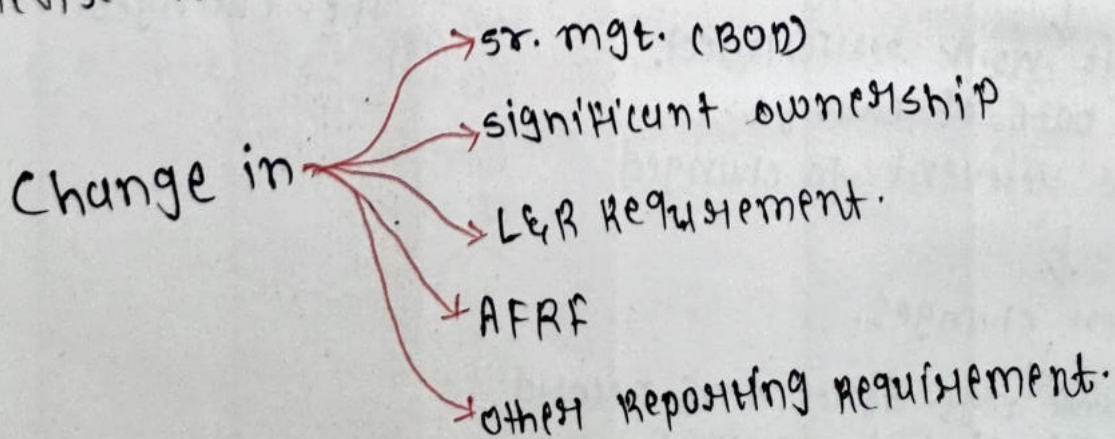 Change in
Sr. mgt. (BOD)
significant ownership
L&R Requirement.
AFRF
other Reporting Requirement.